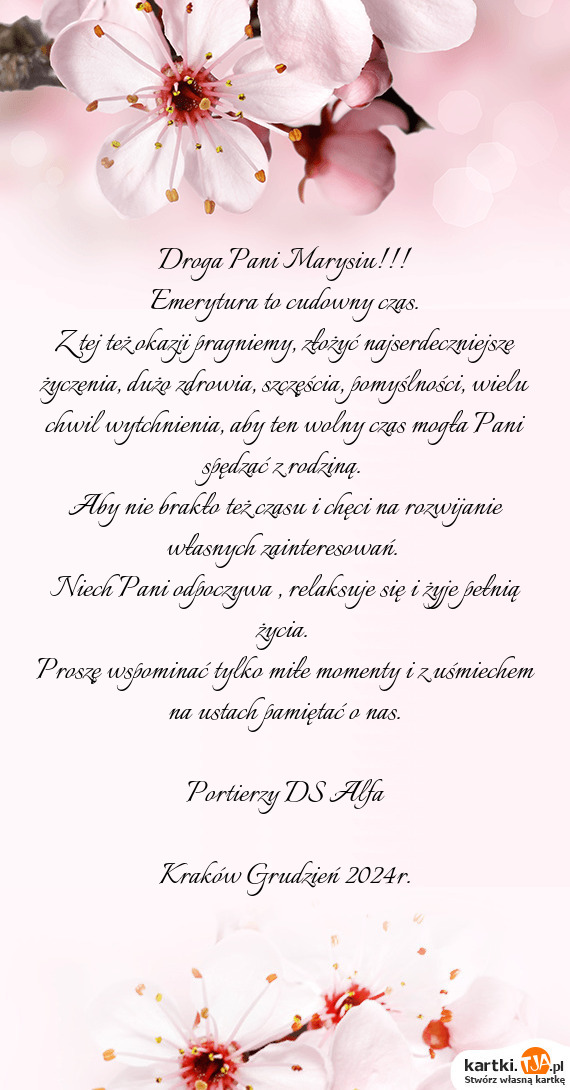 Droga Pani Marysiu!!!
Emerytura to cudowny czas.
Z tej też okazji pragniemy, złożyć najserdeczniejsze
życzenia, dużo zdrowia, szczęścia, pomyślności, wielu
chwil wytchnienia, aby ten wolny czas mogła Pani
spędzać z rodziną.
Aby nie brakło też czasu i chęci na rozwijanie
własnych zainteresowań.
Niech Pani odpoczywa , relaksuje się i żyje pełnią
życia.
Proszę wspominać tylko miłe momenty i z uśmiechem
na ustach pamiętać o nas.
Portierzy DS Alfa
Kraków Grudzień 2024r.
kartki.TJA.pl
Stwórz własną kartkę